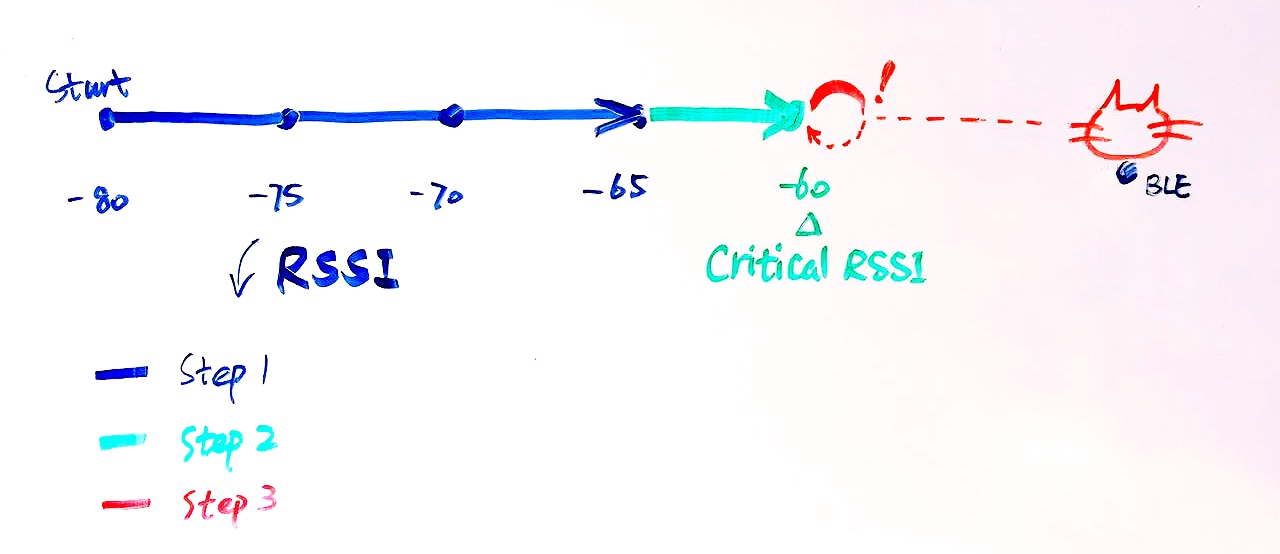 Start
!
-80
-75
-70
-65
-60
BLE
RSSI
Critical RSSI
Step 1
Step 2
Step 3